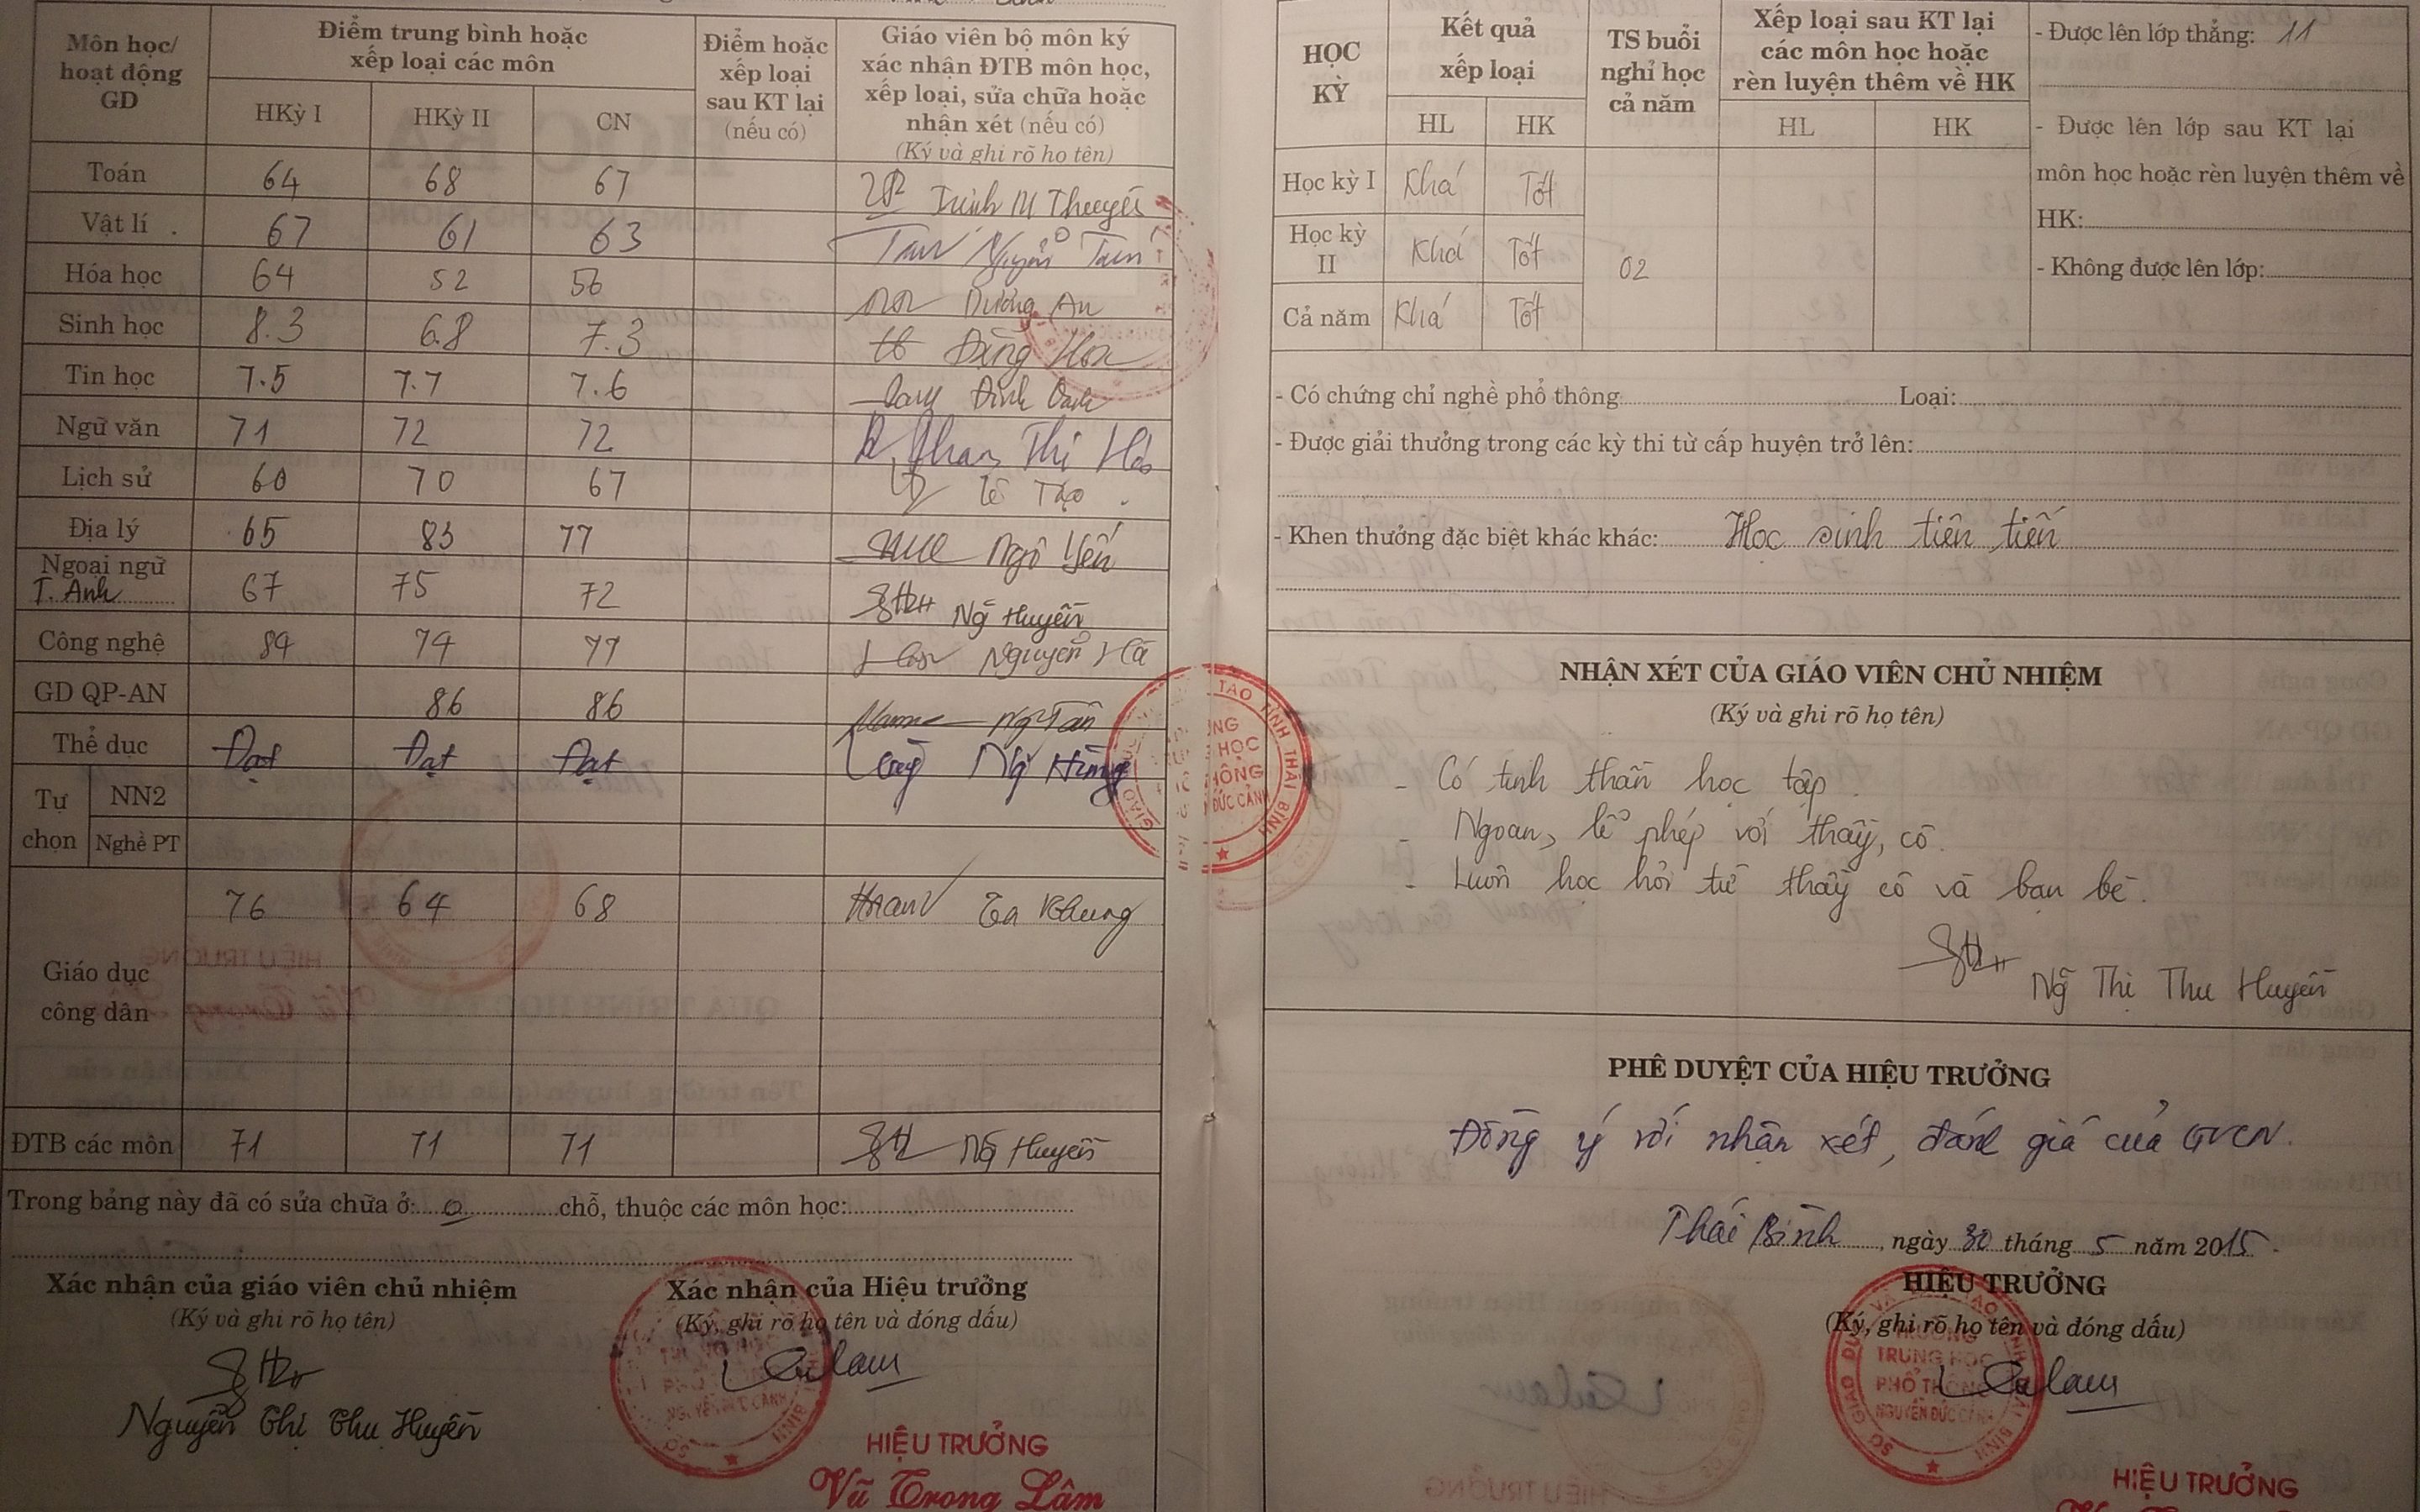 Môn học/
hoạt động
GD
Điểm trung bình hoặc
xếp loại các môn
HKỳ I HKỳ II CN
Điểm hoặc
xếp loại
sau KT lại
(nếu có)
Giáo viên bộ môn ký
xác nhận ĐTB môn học,
xếp loại, sửa chữa hoặc
nhận xét (nếu có)
(Ký và ghi rõ họ tên)
Toán 64 68 67
Vật lí 67 61 63
Hóa học 64 52 56 Dương An
Sinh học 8.3 6.8 7.3 Đặng Hoa
Tin học 7.5 7.7 7.6
Ngữ văn 71 72 72
Lịch sử 60 70 67 Lê Tạo
Địa lý 65 83 77 Ngô Yến
Ngoại ngữ
T. Anh 67 75 72 Ng̃ Huyền
Công nghệ 84 74 77 Nguyễn Hà
GD QP-AN 86 86
Thể dục Đạt Đạt Đạt Ng̃ Hùng
Tự
chọn
NN2
Nghề PT
Giáo dục
công dân
76 64 68
ĐTB các môn 71 71 71 Ng̃ Huyền
Trong bảng này đã có sửa chữa ở: 0 chỗ, thuộc các môn học:
Xác nhận của giáo viên chủ nhiệm
(Ký và ghi rõ họ tên)
Nguyễn Thị Thu Huyền
Xác nhận của Hiệu trưởng
(Ký, ghi rõ họ tên và đóng dấu)
HIỆU TRƯỞNG
Vũ Trọng Lâm
HỌC
KỲ
Kết quả
xếp loại
HL HK
TS buổi
nghỉ học
cả năm
Xếp loại sau KT lại
các môn học hoặc
rèn luyện thêm về HK
HL HK
Học kỳ I Khá Tốt
Học kỳ
II
Khá Tốt
02
Cả năm Khá Tốt
- Được lên lớp thẳng: 11
- Được lên lớp sau KT lại
môn học hoặc rèn luyện thêm về
HK:
- Không được lên lớp:
- Có chứng chỉ nghề phổ thông Loại:
- Được giải thưởng trong các kỳ thi từ cấp huyện trở lên:
- Khen thưởng đặc biệt khác khác: Học sinh tiên tiến
NHẬN XÉT CỦA GIÁO VIÊN CHỦ NHIỆM
(Ký và ghi rõ họ tên)
- Có tinh thần học tập.
- Ngoan, lễ phép với thầy, cô.
- Luôn học hỏi từ thầy cô và bạn bè.
Ng̃ Thị Thu Huyền
PHÊ DUYỆT CỦA HIỆU TRƯỞNG
Đồng ý với nhận xét, đánh giá của GVCN.
Thái Bình, ngày 30 tháng 5 năm 2015.
HIỆU TRƯỞNG
(Ký, ghi rõ họ tên và đóng dấu)
TRƯỜNG
TRUNG HỌC
PHỔ THÔNG
NGUYỄN ĐỨC CẢNH
HIỆU TRƯỞNG